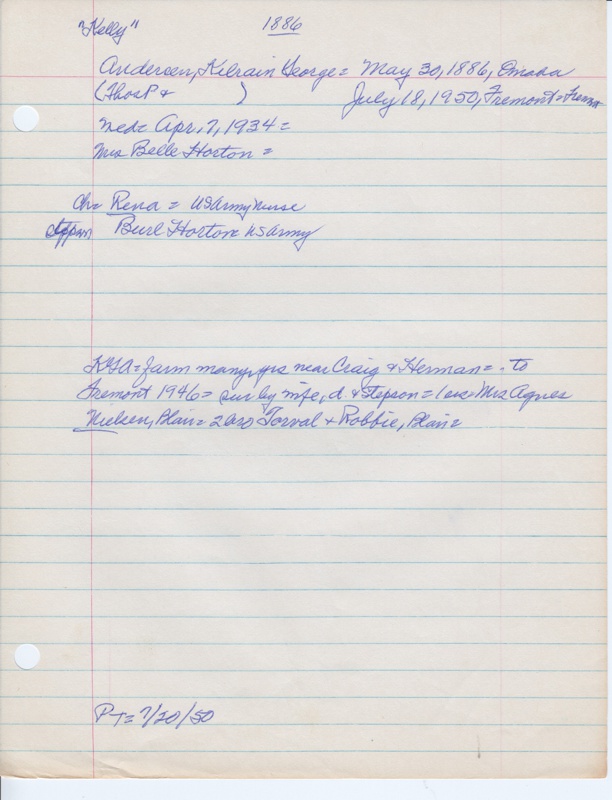 "Kelly" 1886
Andersen, Kilrain George = May 30, 1886, Omaha
(Thos P & ) July 18, 1950, Fremont = Fremont
wed = Apr. 7, 1934 =
Mrs Belle Horton =
ch = Rena = US Army Nurse
stepson Burl Horton = US Army
KGA = farm many yrs near Craig & Herman = . to
Fremont 1946 = sur by wife, d. & stepson = 1 sis = Mrs Agnes
Nielsen, Blair = 2 bro Torval & Robbie, Blair =
PT = 7/20/50